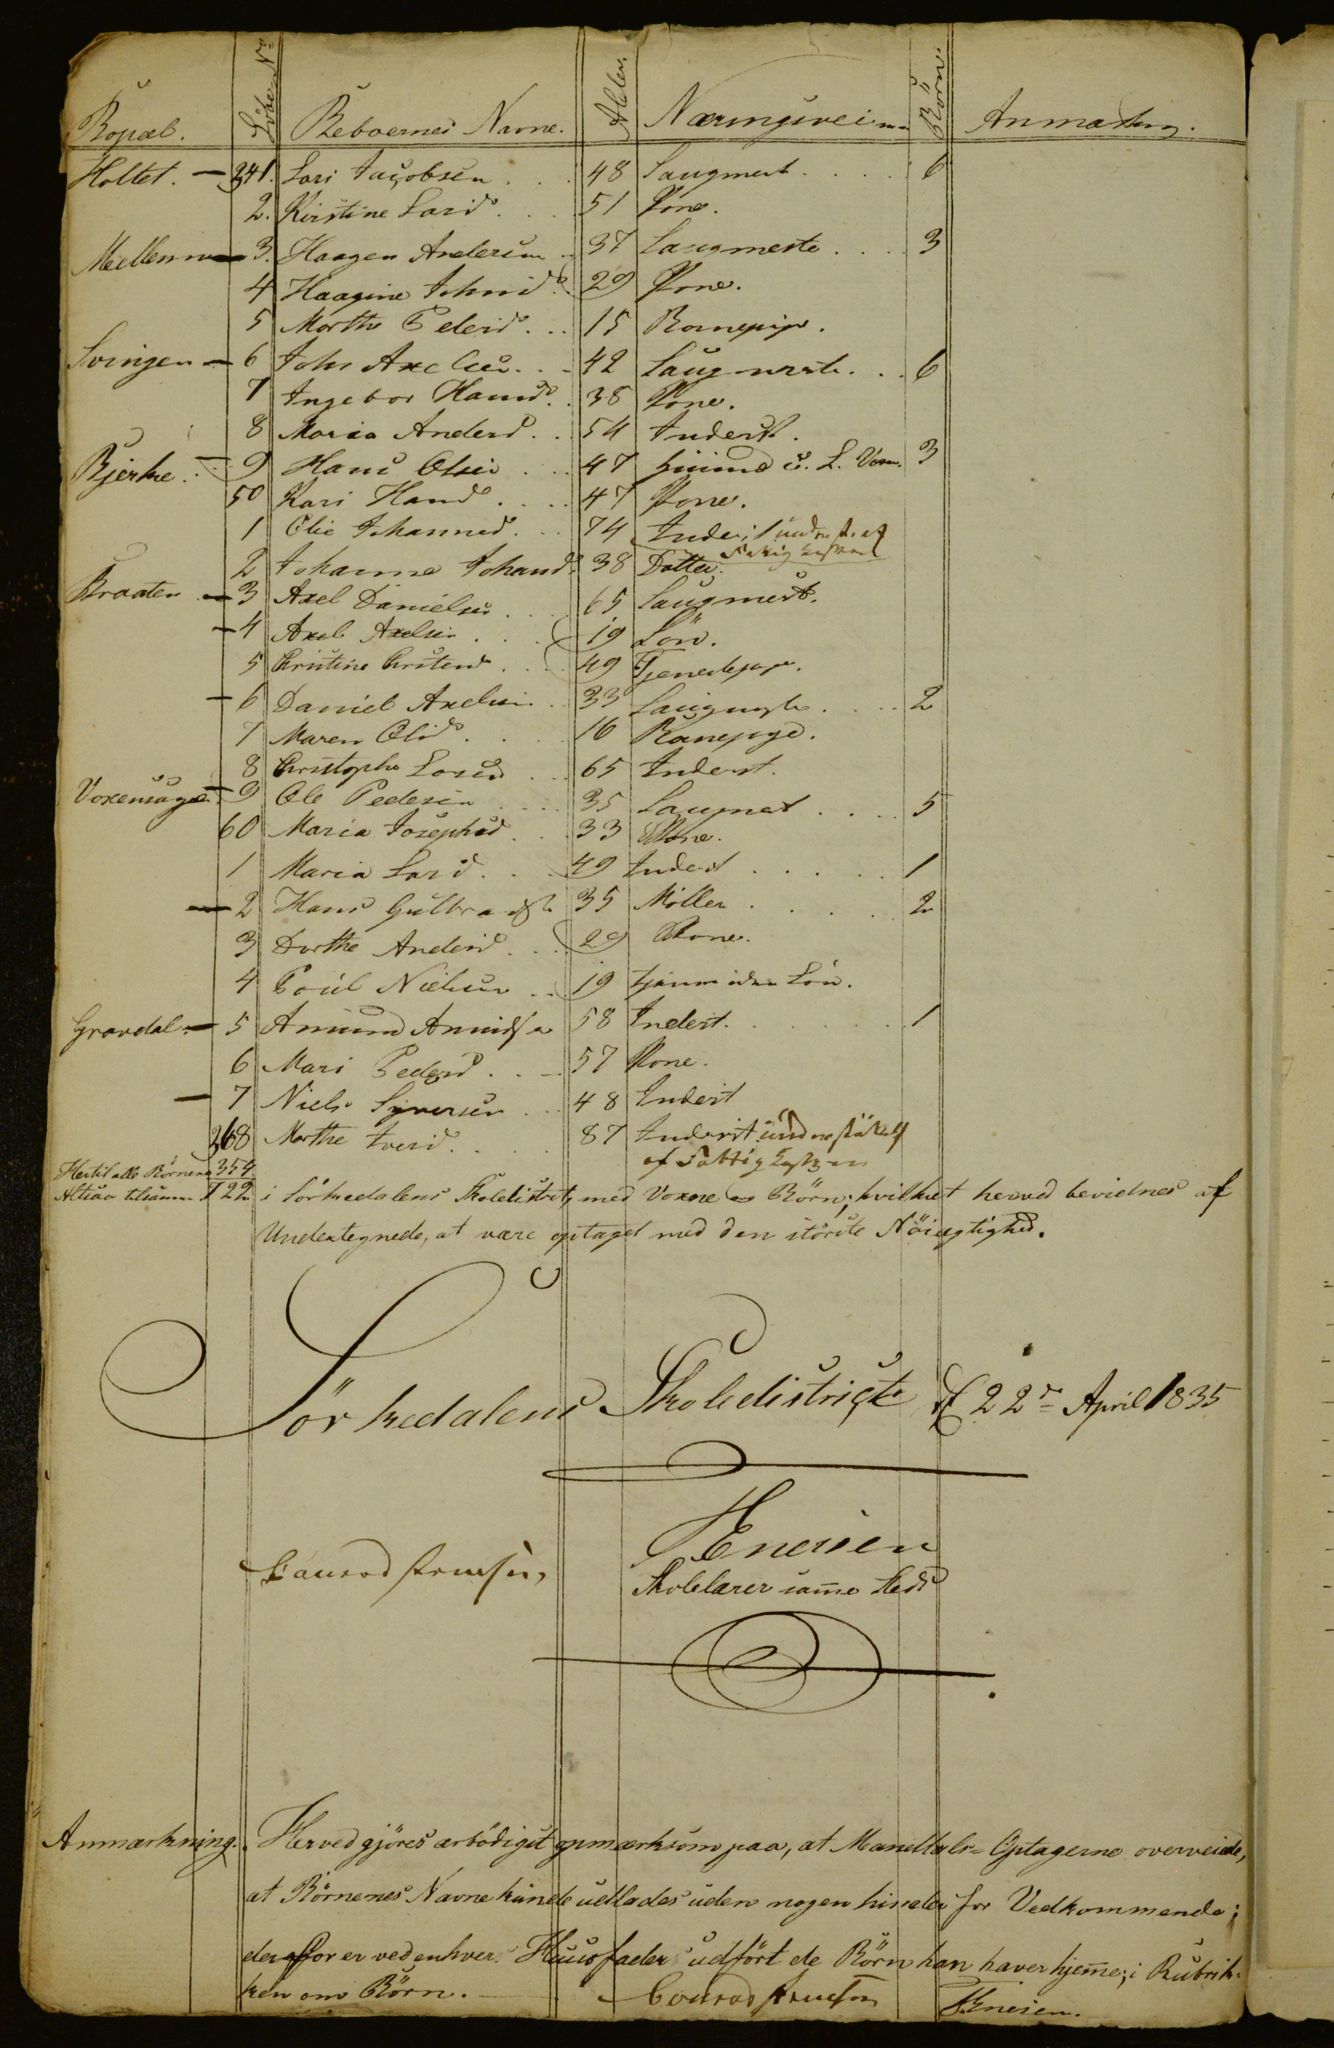 Bopæl. Løbe No Beboernes Navne. Alder. Næringsvei Börn. Anmærkn.
Holtet. 341. Lars Jacobsen 48 Saugmest 6
2. Kirstine Larsd. 51 Kone.
Mellem 3. Haagen Andersen 37 Saugmester 3
4 Haagine Johnsd. 29 Kone.
5 Morthe Pedersd. 15 Barnepige.
Svingen 6 John Axelsen 42 Saugmester 6
7 Ingebor Hansd. 38 Kone.
8 Maria Andersd. 54 Inderst.
Bjerke. 9 Hans Olsen 47 3
50 Kari Hansd. 47 Kone.
1 Olie Johannesd. 74 Inderst underst. af
Fattigkassen
2 Johanne Johansd. 38 Datter.
Braaten 3 Axel Danielsen 65 Saugmest.
4 Axel Axelsen 19 Sön.
5 Christine 49 Tjenestepige.
6 Daniel Axelsen 33 Saugmest 2
7 Maren Olsd. 16 Barnepige.
8 Christophe Larsen 65 Inderst.
Voxensaug 9 Ole Pedersen 35 Saugmest 5
60 Maria Josephsd 33 Kone.
1 Maria Larsd. 49 Inderst 1
2 Hans Gulbrands. 35 Möller 2
3 Dorthe Andersd. 29 Kone.
4 Poul Nielsen 19 tjener uden Lön.
Gravdal 5 Amund Amunds. 58 Inderst. 1
6 Mari Pedersd. 57 Kone.
7 Niels Syversen 48 Inderst
368 Morthe Iversd. 87 Inderst understöttet
af Fattigkassen
Hertil alle Börnene 354
Altsaa tilsamm. 722 i Sörkedalens Skoledistrict, med Voxne og Börn, hvilket herved bevidnes af
Undertegnede, at være optaget med den störste Nöiagtighed.
Sörkedalens Skoledistrict d 22de April 1835
Enersen
Skolelærer samme Steds
Anmærkning. Herved gjöres ærbödigst opmærksom paa, at Mandtals-Optagerne overveiede,
at Börnenes Navne kunde udlades uden nogen hinder for Vedkommende;
derfor er ved enhver Huusfader udfört de Börn han haver hjem̅e, i Rubrik-
ken om Börn. Enersen.